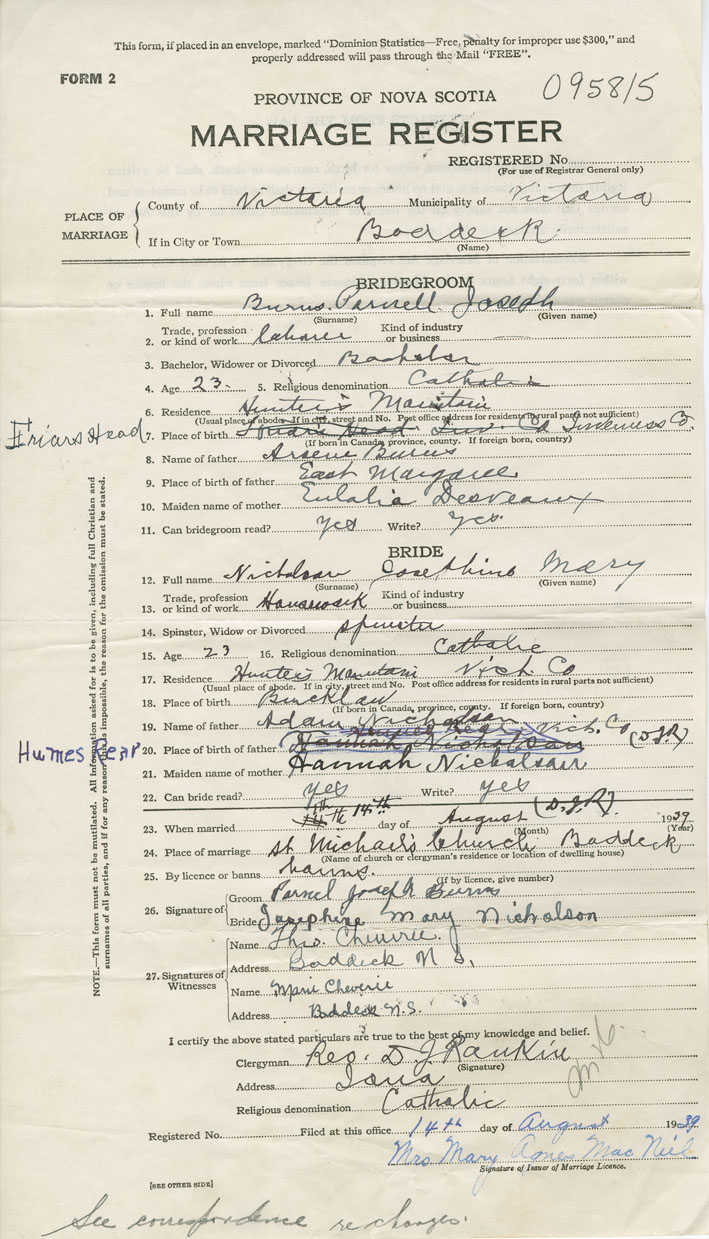 This form, if placed in an envelope, marked "Dominion Statistics—Free, penalty for improper use $300," and
properly addressed will pass through the Mail "FREE".
FORM 2
095815
PROVINCE OF NOVA SCOTIA
MARRIAGE REGISTER
REGISTERED No.
(For use of Registrar General only)
PLACE OF MARRIAGE
County of Victoria Municipality of Victoria
If in City or Town Baddeck
(Name)
BRIDEGROOM
1. Full name Burns Parnell Joseph
(Surname) (Given name)
2. Trade, profession or kind of work laborer Kind of industry or business —
3. Bachelor, Widower or Divorced Bachelor
4. Age 23. 5. Religious denomination Catholic
6. Residence Hunter's Mountain
(Usual place of abode. If in city, street and No. Post office address for residents in rural parts not sufficient)
Friars Head
7. Place of birth Inverness Co.
(If born in Canada, province, county. If foreign born, country)
8. Name of father Arsene Burns
9. Place of birth of father East Margaree
10. Maiden name of mother Eulalia Desveaux
11. Can bridegroom read? Yes Write? Yes.
BRIDE
12. Full name Nicholson Josephine Mary
(Surname) (Given name)
13. Trade, profession or kind of work Housework Kind of industry or business
14. Spinster, Widow or Divorced spinster
15. Age 23 16. Religious denomination Catholic
17. Residence Hunter's Mountain Vict. Co
(Usual place of abode. If in city, street and No. Post office address for residents in rural parts not sufficient)
18. Place of birth Bucklaw
(If born in Canada, province, county. If foreign born, country)
19. Name of father Adam Nicholson
Humes Rear
20. Place of birth of father Hannah Nicholson Vict. Co (D.J.R)
21. Maiden name of mother Hannah Nicholson
22. Can bride read? yes Write? yes
23. When married 14th day of August (D.J.R.) 1939
(Month) (Year)
24. Place of marriage St Michael's Church Baddeck
(Name of church or clergyman's residence or location of dwelling house)
25. By licence or banns banns.
(If by licence, give number)
26. Signature of
Groom Parnel Joseph Burns
Bride Josephine Mary Nicholson
27. Signatures of Witnesses
Name Thos. Cheverie.
Address Baddeck N S.
Name Marie Cheverie
Address Baddeck N.S.
I certify the above stated particulars are true to the best of my knowledge and belief.
Clergyman Rev. D. J. Rankin
(Signature)
Address Iona
Religious denomination Catholic
Registered No. Filed at this office 14th day of August 1939
Mrs Mary Agnes Mac Neil
Signature of Issuer of Marriage Licence.
[SEE OTHER SIDE]
See correspondence re changes.
NOTE.—This form must not be mutilated. All information asked for is to be given, including full Christian and
surnames of all parties, and if for any reason this is impossible, the reason for the omission must be stated.